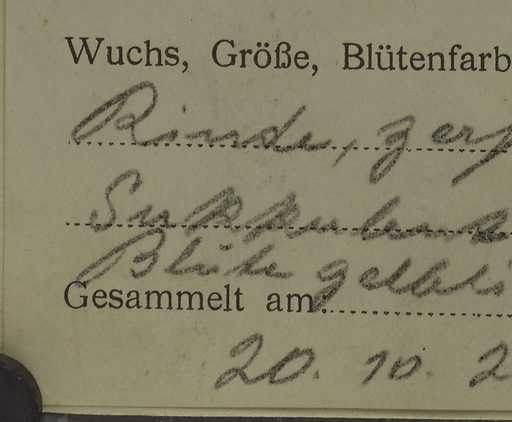 Wuchs, Größe, Blütenfarb
Rinde, zerp
Sukkulenz
Blüte gelbli
Gesammelt am:
20. 10. 2